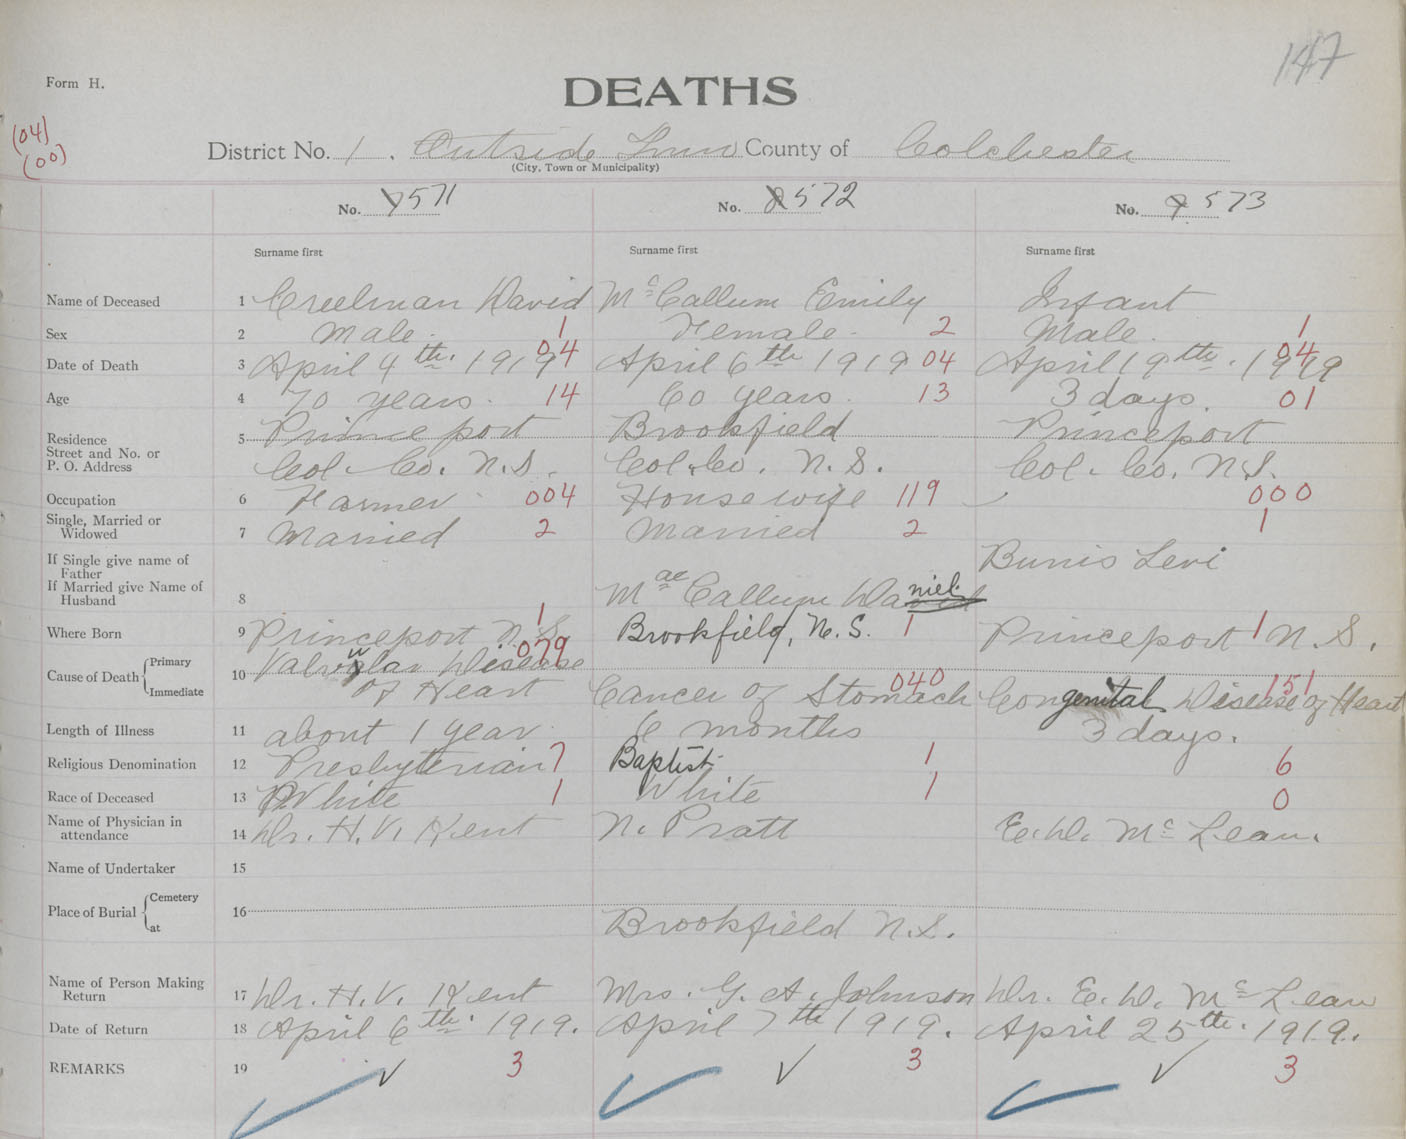 147
Form H.
DEATHS
(04)
(00)
District No. 1. Outside Truro County of Colchester
(City, Town or Municipality)
No. 7 571 No. 8 572 No. 9 573
Surname first Surname first Surname first
Name of Deceased 1 Creelman David McCallum Emily Infant
Sex 2 Male. 1 Female. 2 Male. 1
Date of Death 3 April 4th. 1919 04 April 6th 1919 04 April 19th. 1919 04
Age 4 70 years. 14 60 years. 13 3 days. 01
Residence
Street and No. or
P. O. Address
5 Princeport Brookfield Princeport
Col. Co. N.S. Col. Co. N.S. Col. Co. N.S.
Occupation 6 Farmer 004 Housewife 119 000
Single, Married or
Widowed
7 Married 2 Married 2 1
If Single give name of
Father
If Married give Name of
Husband
8 MacCallum Daniel Bunis Levi
Where Born 9 Princeport N.S. 1 Brookfield, N.S. 1 Princeport 1 N.S.
Cause of Death { Primary
Immediate
10 Valvular Disease 079
of Heart Cancer of Stomach 040 Congenital Disease of Heart 151
Length of Illness 11 about 1 year 6 months 3 days.
Religious Denomination 12 Presbyterian 7 Baptist. 1 6
Race of Deceased 13 White 1 White 1 0
Name of Physician in
attendance
14 Dr. H. V. Kent N. Pratt E. D. McLean.
Name of Undertaker 15
Place of Burial { Cemetery
at
16 Brookfield N.S.
Name of Person Making
Return
17 Dr. H. V. Kent Mrs. G. A. Johnson Dr. E. D. McLean
Date of Return 18 April 6th. 1919. April 7th 1919. April 25th. 1919.
REMARKS 19 3 3 3